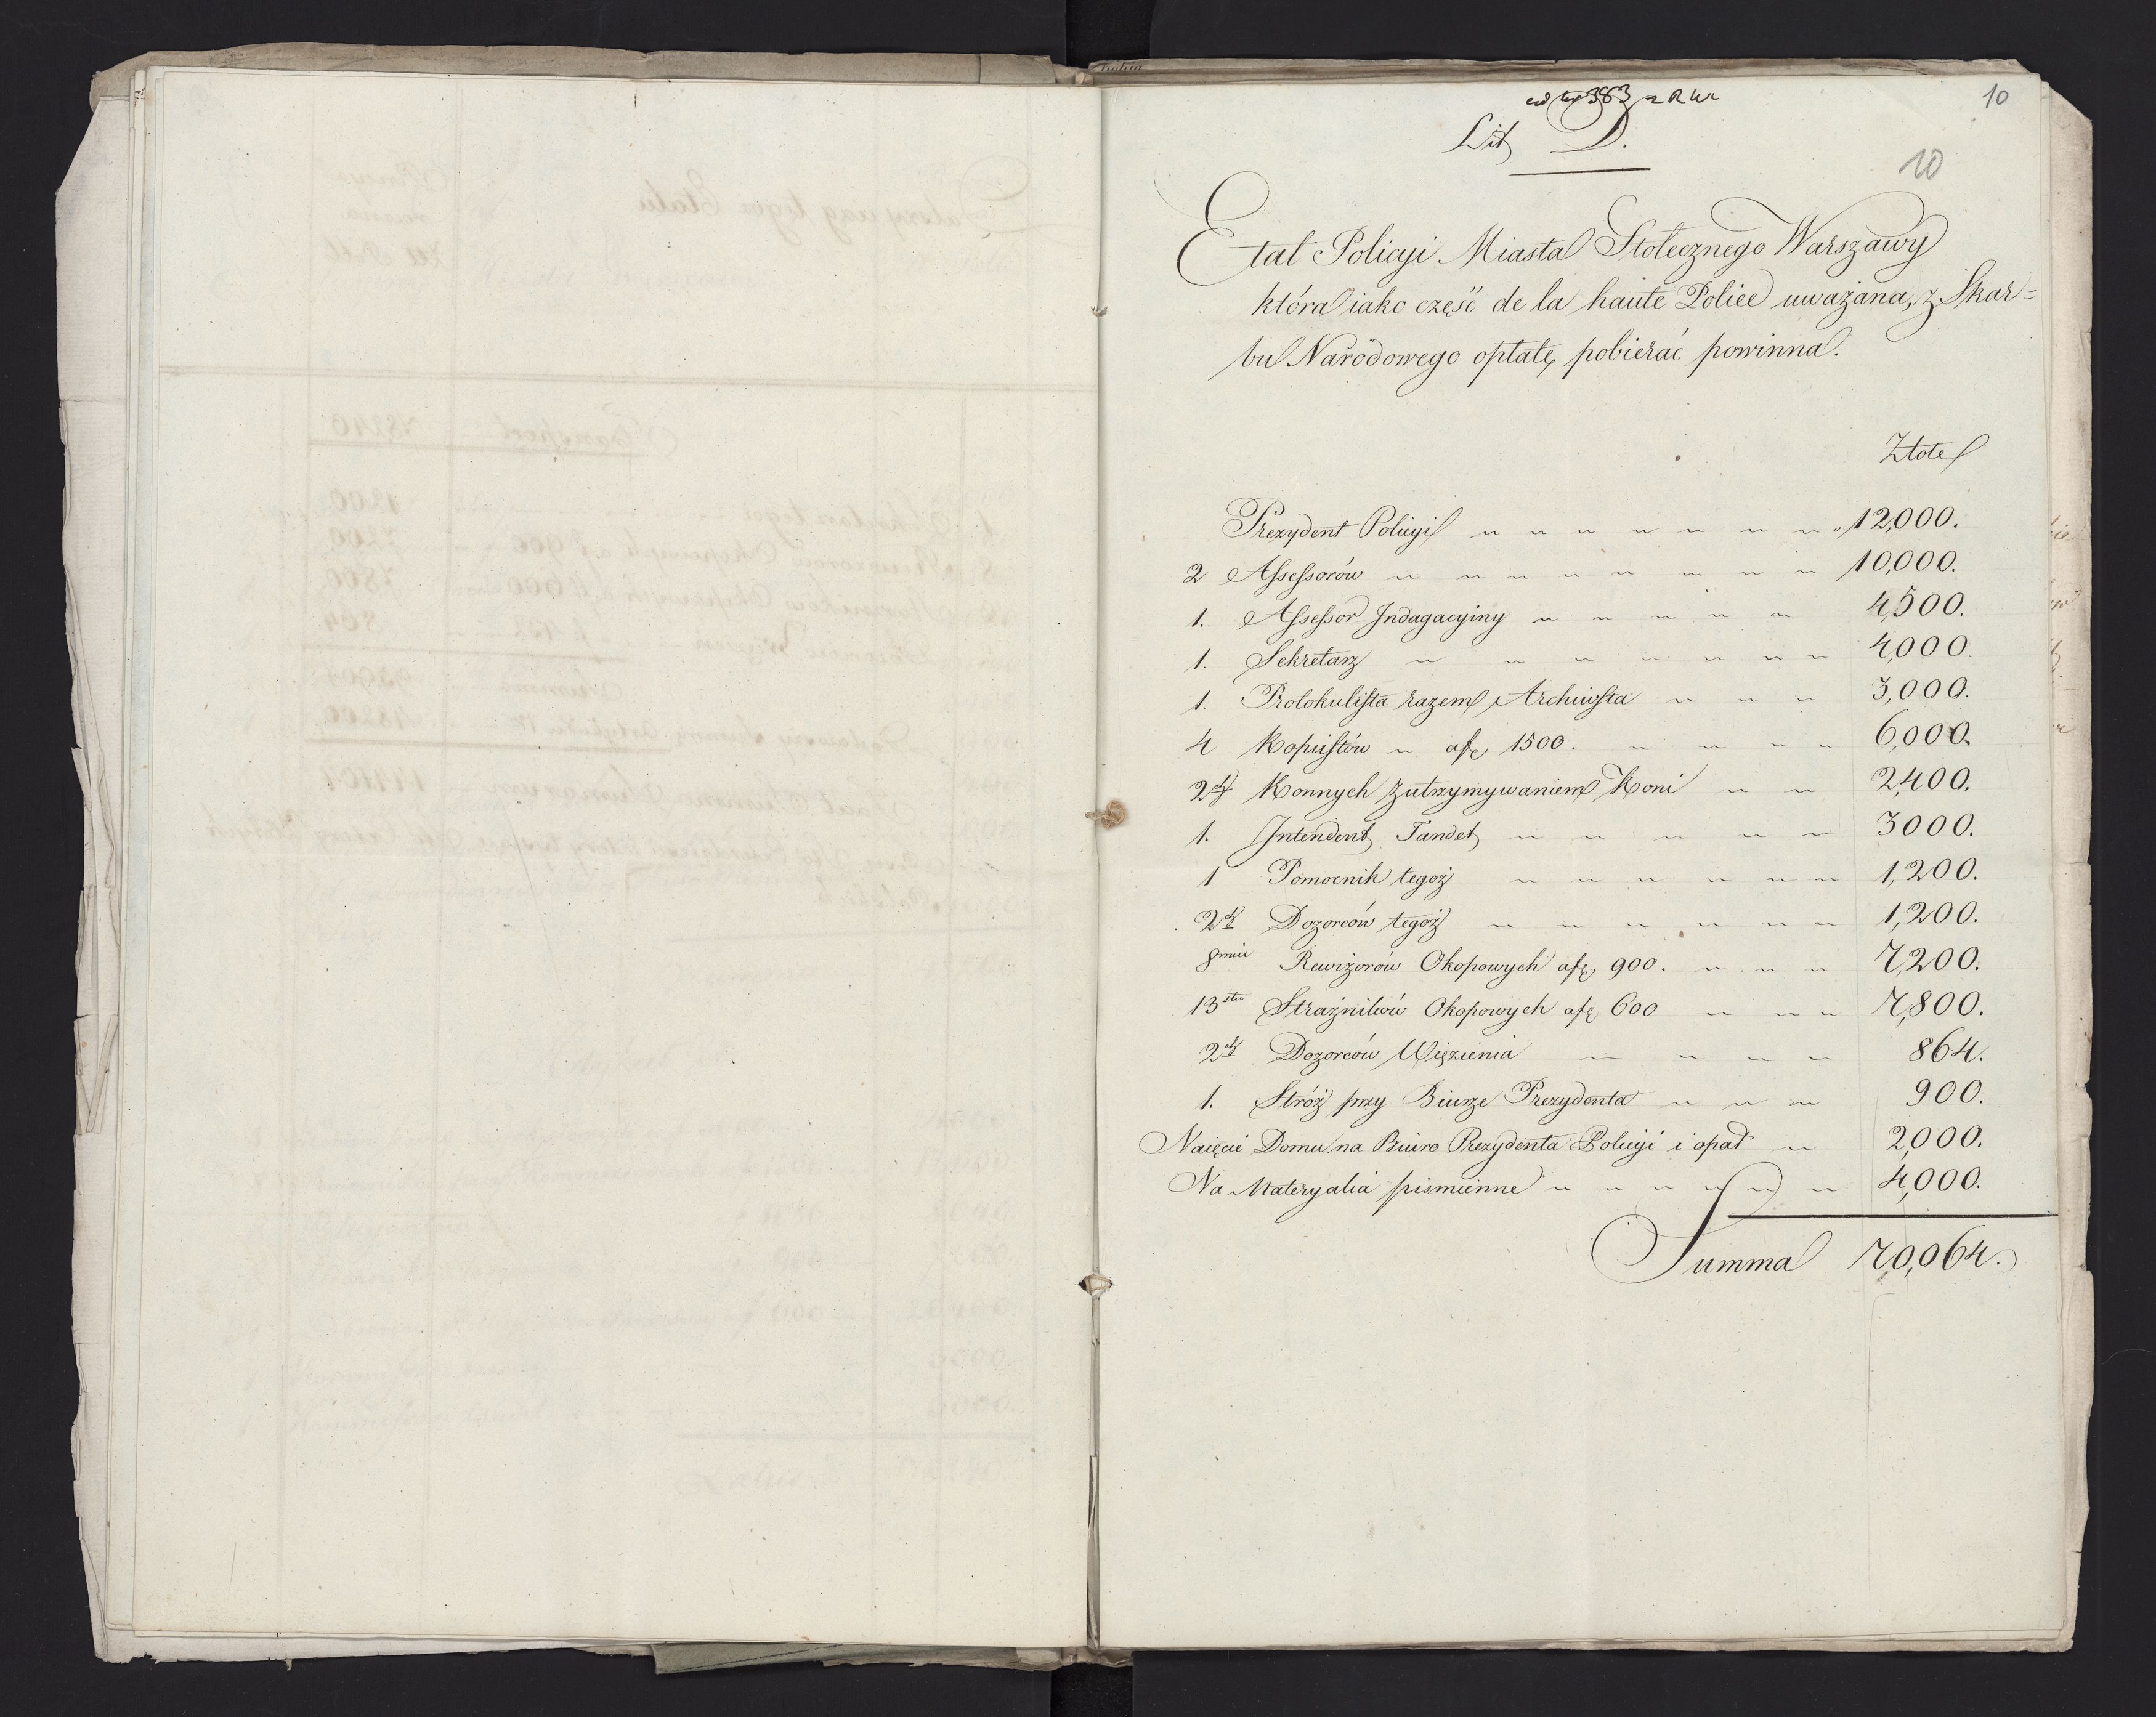 10
Lit D.
10
Etat Policyi Miasta Stołecznego Warszawy
która iako część de la haute Police uważana, z Skar=
bu Narodowego opłatę pobierać powinna.
Złote
Prezydent Policyi " " " " " " " " 12,000.
2 Assessorów " " " " " " " " " 10,000.
1. Assessor Indagacyiny " " " " " 4,500.
1. Sekretarz " " " " " " " " 4,000.
1. Protokulista razem Archiwista " " " 3,000.
4 Kopiistów " a f 1500. " " " " 6,000.
2ch Konnych z utrzymywaniem Koni " " 2,400.
1. Intendent Tandet " " " " " " 3000.
1 Pomocnik tegoż " " " " " " 1,200.
2ch Dozorców tegoż " " " " " " 1,200.
8miu Rewizorów Okopowych a f 900. " " " 7,200.
13stu Strażników Okopowych a f 600 " " " 7,800.
2ch Dozorców Więzienia " " " " 864.
1. Stróż przy Biurze Prezydenta " " " 900.
Naięcie Domu na Biuro Prezydenta Policyi i opał " 2,000.
Na Materyalia pismienne " " " " " " 4,000.
Summa 70,064.